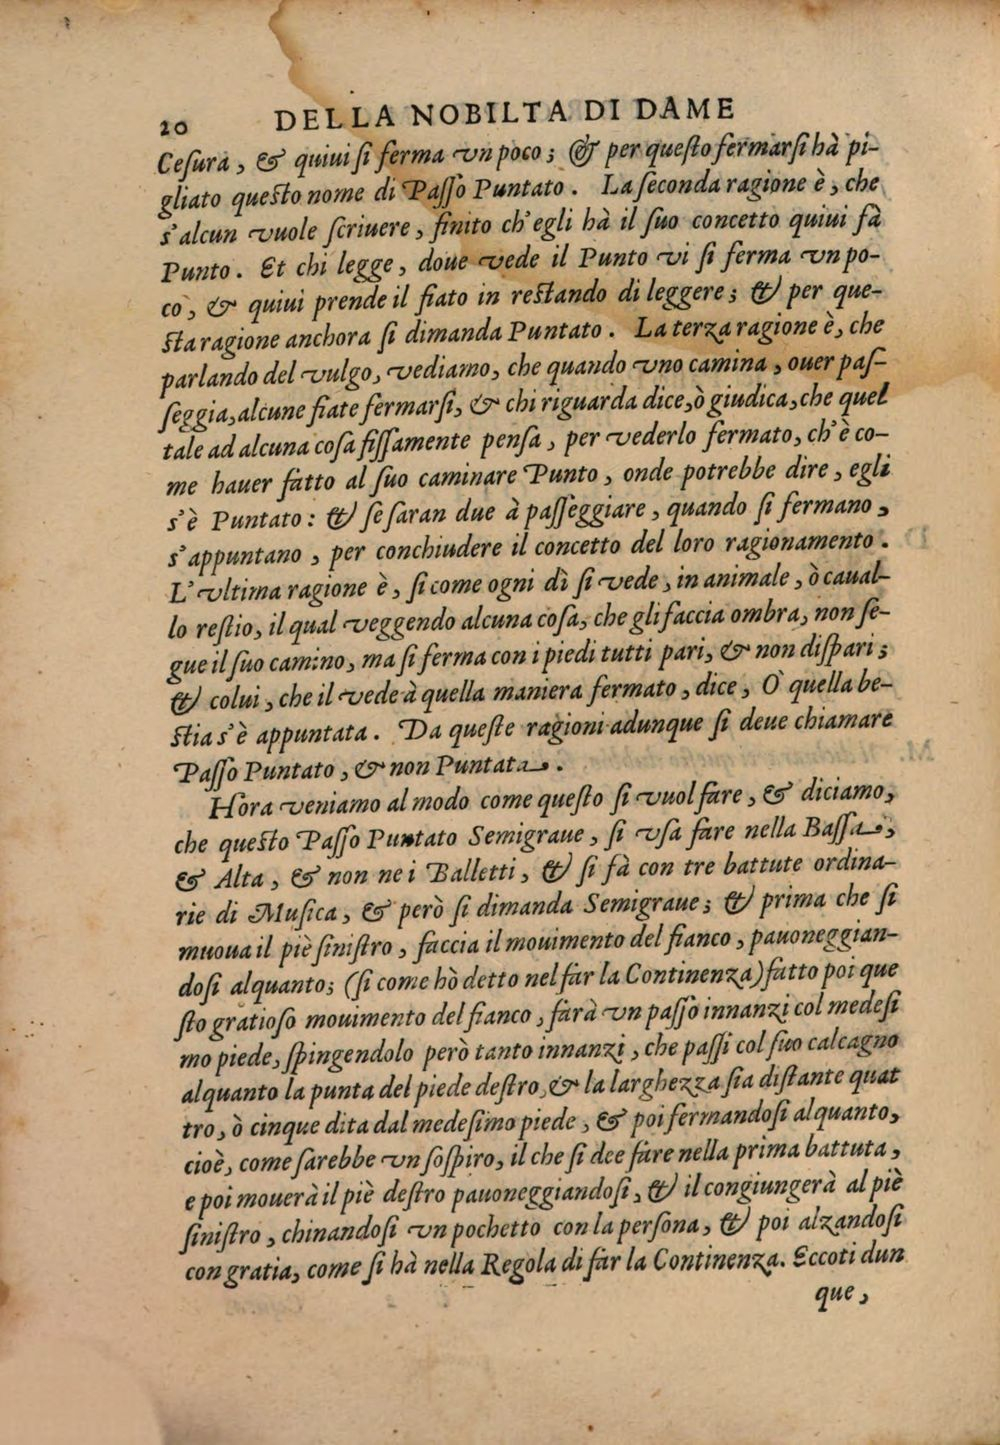 20 DELLA NOBILTA DI DAME
Ceſura, & quiui ſi ferma vn poco; & per queſto fermarſi hà pi-
gliato queſto nome di Paſſo Puntato. La ſeconda ragione è, che
s'alcun vuole ſcriuere, finito ch'egli hà il ſuo concetto quiui fà
Punto. Et chi legge, doue vede il Punto vi ſi ferma vn po-
co, & quiui prende il fiato in reſtando di leggere; & per que-
ſta ragione anchora ſi dimanda Puntato. La terza ragione è, che
parlando del vulgo, vediamo, che quando vno camina, ouer paſ-
ſeggia, alcune fiate fermarſi, & chi riguarda dice, ò giudica, che quel
tale ad alcuna coſa fiſſamente penſa, per vederlo fermato, ch'è co-
me hauer fatto al ſuo caminare Punto, onde potrebbe dire, egli
s'è Puntato: & ſe ſaran due à paſſeggiare, quando ſi fermano,
s'appuntano, per conchiudere il concetto del loro ragionamento.
L'vltima ragione è, ſi come ogni dì ſi vede, in animale, ò caual-
lo reſtio, il qual veggendo alcuna coſa, che gli faccia ombra, non ſe-
gue il ſuo camino, ma ſi ferma con i piedi tutti pari, & non diſpari;
& colui, che il vede à quella maniera fermato, dice, O quella be-
ſtia s'è appuntata. Da queſte ragioni adunque ſi deue chiamare
Paſſo Puntato, & non Puntata.
Hora veniamo al modo come queſto ſi vuol fare, & diciamo,
che queſto Paſſo Puntato Semigraue, ſi vſa fare nella Baſſa,
& Alta, & non ne i Balletti, & ſi fà con tre battute ordina-
rie di Muſica, & però ſi dimanda Semigraue; & prima che ſi
muoua il piè ſiniſtro, faccia il mouimento del fianco, pauoneggian-
doſi alquanto; (ſi come hò detto nel far la Continenza) fatto poi que
ſto gratioſo mouimento del fianco, farà vn paſſo innanzi col medeſi
mo piede, ſpingendolo però tanto innanzi, che paſſi col ſuo calcagno
alquanto la punta del piede deſtro, & la larghezza ſia diſtante quat
tro, ò cinque dita dal medeſimo piede, & poi fermandoſi alquanto,
cioè, come ſarebbe vn ſoſpiro, il che ſi dee fare nella prima battuta,
e poi mouerà il piè deſtro pauoneggiandoſi, & il congiungerà al piè
ſiniſtro, chinandoſi vn pochetto con la perſona, & poi alzandoſi
con gratia, come ſi hà nella Regola di far la Continenza. Eccoti dun
que,